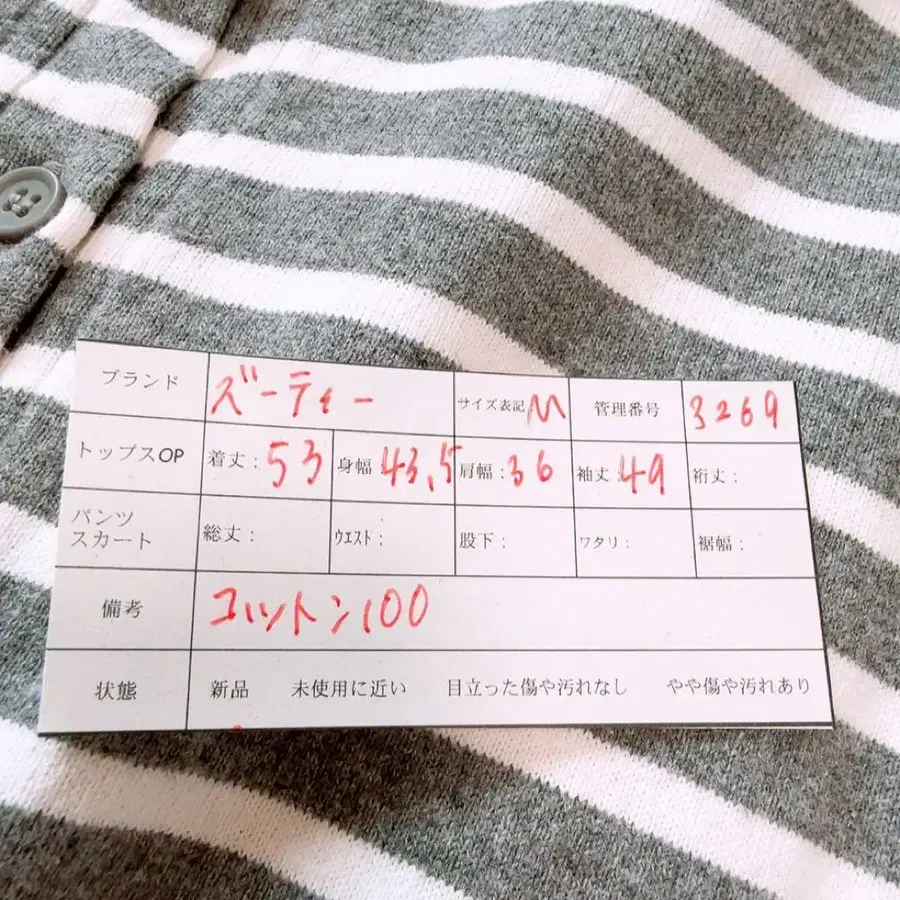 ブランド ズーティー サイズ表記 M 管理番号 3269
トップスOP 着丈：53 身幅 43.5 肩幅：36 袖丈：49 裄丈：
パンツ
スカート 総丈： ウエスト： 股下： ワタリ： 裾幅：
備考 コットン100
状態 新品 未使用に近い 目立った傷や汚れなし やや傷や汚れあり